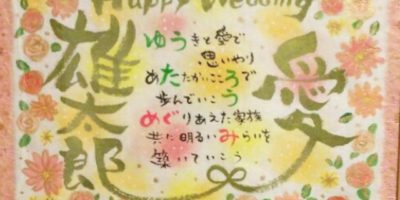 Happy Wedding
雄太郎
愛
ゆうきと愛で
思いやり
あたたかいこころで
歩んでいこう
めぐりあえた家族
共に明るいみらいを
築いていこう